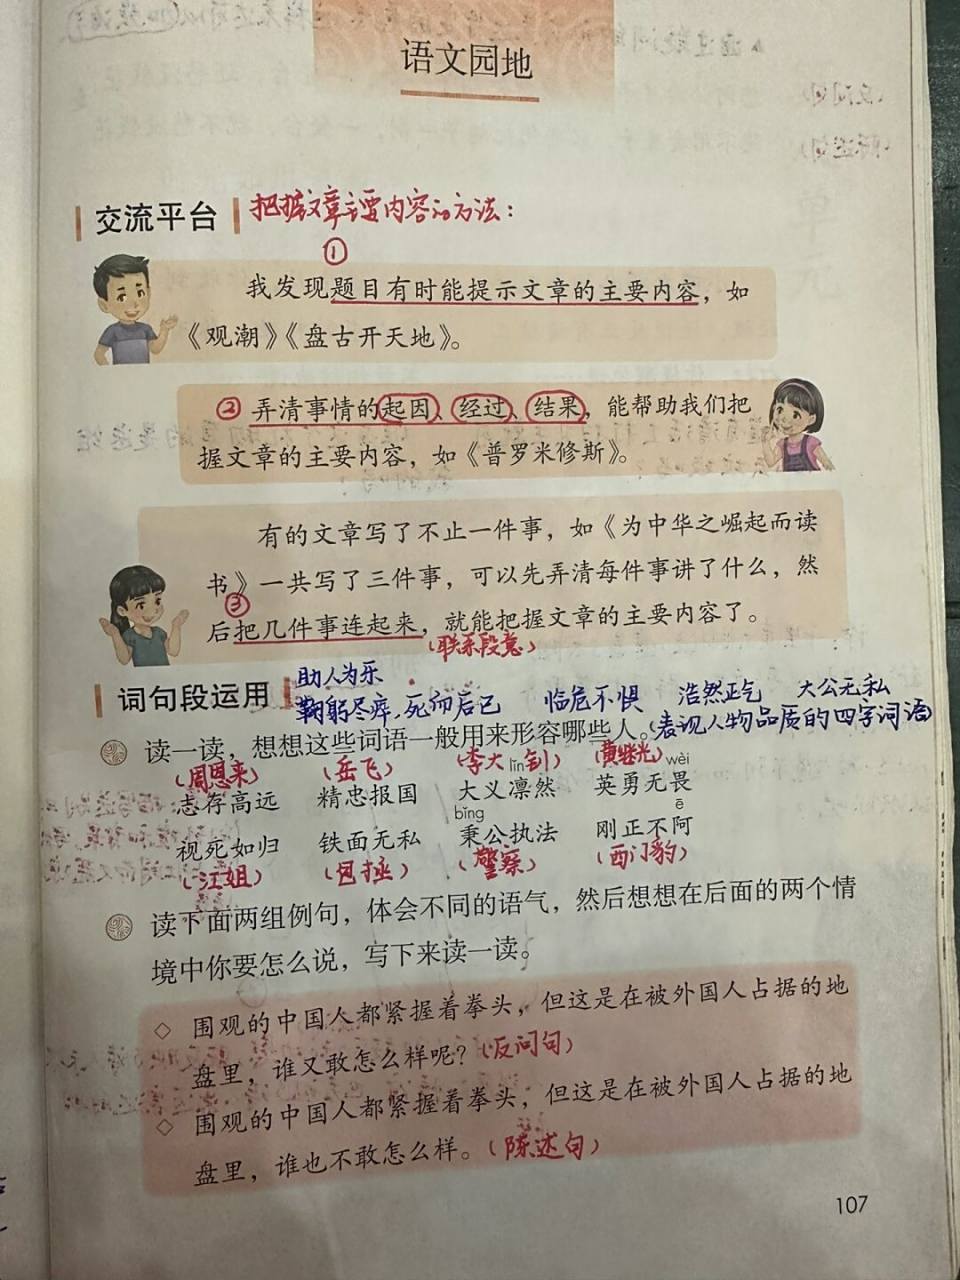 语文园地
交流平台 把握文章主要内容的方法：
①
我发现题目有时能提示文章的主要内容，如
《观潮》《盘古开天地》。
② 弄清事情的起因、经过、结果，能帮助我们把
握文章的主要内容，如《普罗米修斯》。
有的文章写了不止一件事，如《为中华之崛起而读
书》一共写了三件事，可以先弄清每件事讲了什么，然
③
后把几件事连起来，就能把握文章的主要内容了。
（联系段意）
助人为乐
词句段运用 鞠躬尽瘁，死而后已 临危不惧 浩然正气 大公无私
读一读，想想这些词语一般用来形容哪些人。（表现人物品质的四字词语）
（周恩来） （岳飞） （李大钊） （黄继光）
lǐn wèi
志存高远 精忠报国 大义凛然 英勇无畏
bǐng ē
视死如归 铁面无私 秉公执法 刚正不阿
（江姐） （包拯） （警察） （西门豹）
读下面两组例句，体会不同的语气，然后想想在后面的两个情
境中你要怎么说，写下来读一读。
◇ 围观的中国人都紧握着拳头，但这是在被外国人占据的地
盘里，谁又敢怎么样呢？（反问句）
◇ 围观的中国人都紧握着拳头，但这是在被外国人占据的地
盘里，谁也不敢怎么样。（陈述句）
107